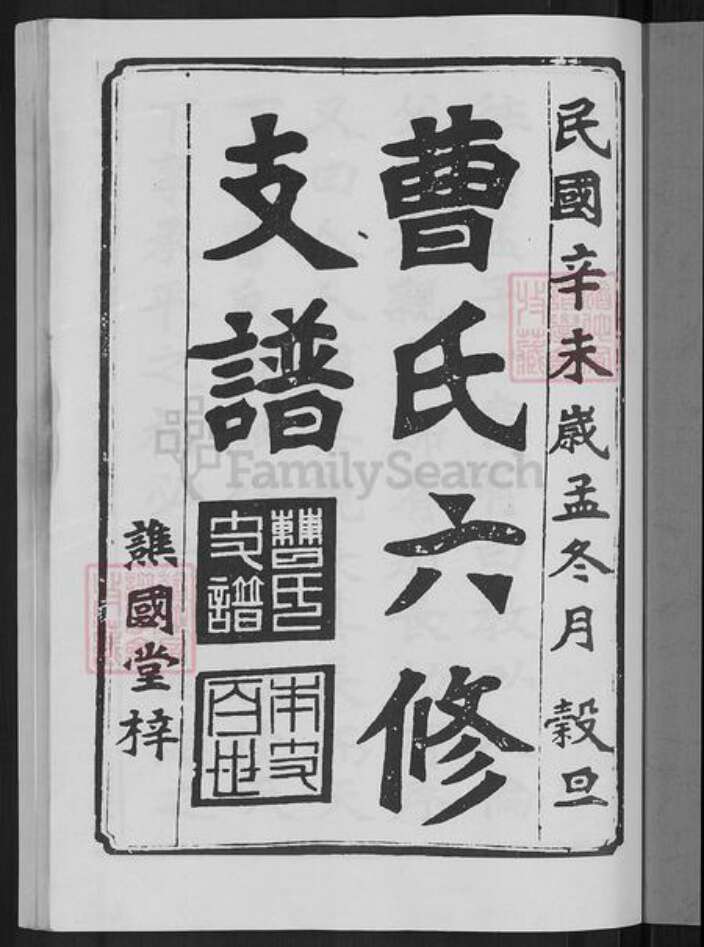 民國辛未歲孟冬月 穀旦
曹氏六修
支譜
曹氏支譜
本支百世
譙國堂梓
FamilySearch
特藏